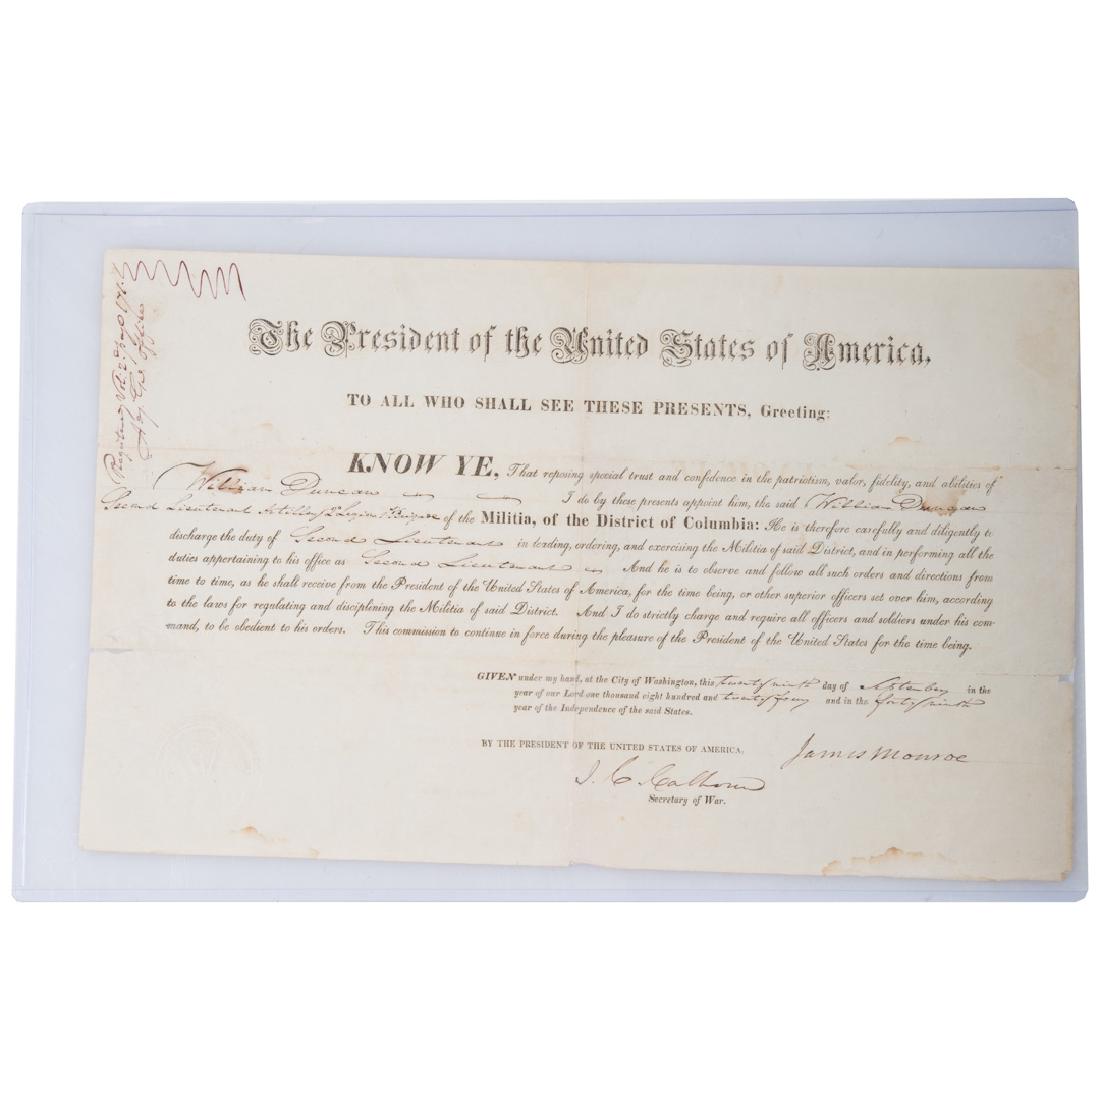 The President of the United States of America,
TO ALL WHO SHALL SEE THESE PRESENTS, Greeting:
KNOW YE, That reposing special trust and confidence in the patriotism, valor, fidelity, and abilities of
William Duncan I do by these presents appoint him, the said William Duncan
Second Lieutenant of the Militia, of the District of Columbia: He is therefore carefully and diligently to
discharge the duty of Second Lieutenant in leading, ordering, and exercising the Militia of said District, and in performing all the
duties appertaining to his office as Second Lieutenant And he is to observe and follow all such orders and directions from
time to time, as he shall receive from the President of the United States of America, for the time being, or other superior officers set over him, according
to the laws for regulating and disciplining the Militia of said District. And I do strictly charge and require all officers and soldiers under his com-
mand, to be obedient to his orders. This commission to continue in force during the pleasure of the President of the United States for the time being.
GIVEN under my hand, at the City of Washington, this twenty ninth day of September in the
year of our Lord one thousand eight hundred and twenty four and in the forty ninth
year of the Independence of the said States.
James Monroe
BY THE PRESIDENT OF THE UNITED STATES OF AMERICA,
J. C. Calhoun
Secretary of War.